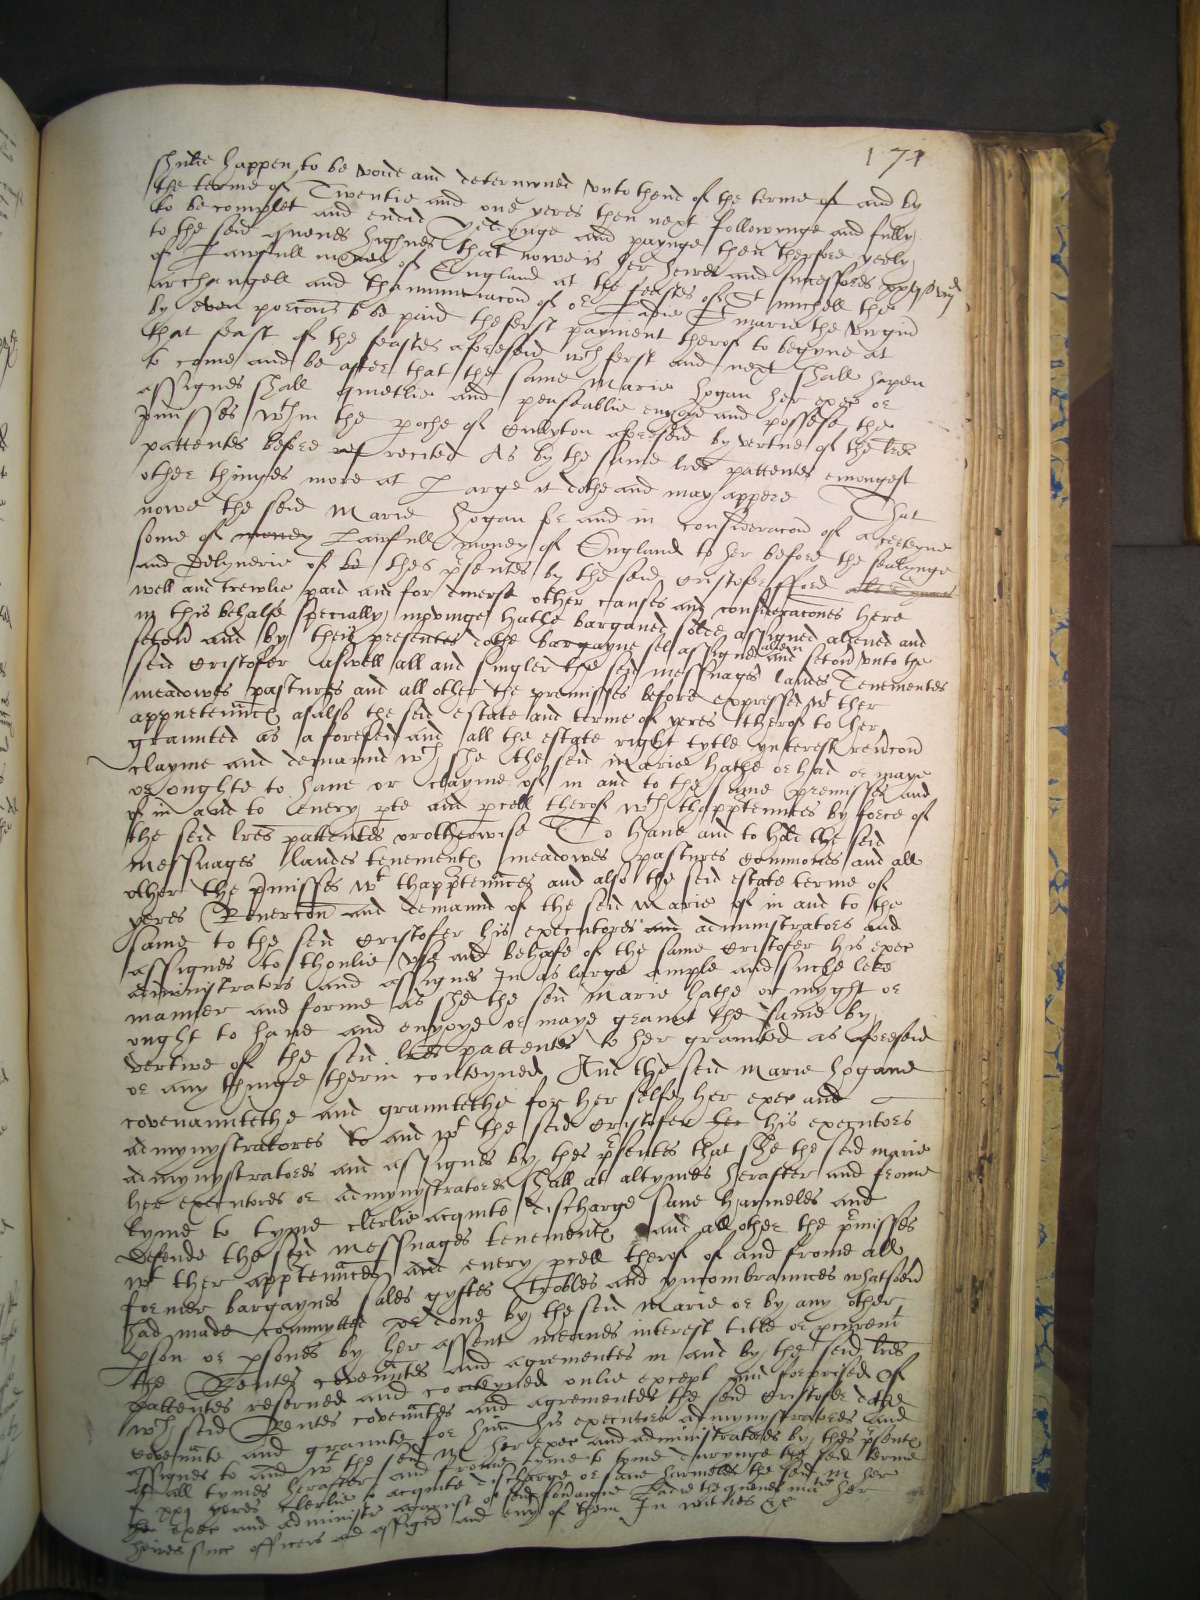 171
shulde happen to be voide and determyned unto thend of the terme of and by
the terme of Twentie and one yeres then next followynge and fully
to be complet and ended yeldynge and payinge then therfore yerly
to the seid quenes highnes that nowe is her heires and successors
of Lawfull money of England at the feastes of St michell the
archangell and thannunciacon of or Ladie St marie the virgin
by even porcons to be paid the ferst payment therof to begyne at
that feast of the feastes aforeseid wch ferst and next shall hapen
to come and be after that the same Marie hogan her exec or
assignes shall quietlie and peaseablie enioye and possese the
pmisses wthin the poche of aforeseid by vertue of the lres
pattentes before recited As by the same lres pattentes emongest
other thinges more at Large it dothe and may appere That
nowe the seid Marie hogan for and in consideracon of a certeyne
some of money Lawfull money of England to her before the sealynge
and Delyverie of thes psentes by the seid Cristofer fford
well and trewlie paid and for diverse other causes and consideracones here
in this behalfe specially movinge hathe barganed solde assigned aliened and
setover and by theis presentes dothe bargayne sell assigne alien and setover unto the
seid Cristofer aswell all and singler the seid messuages landes Tenementes
meadowes pastures and all other the premisses before expressed wt ther
appurtennces as also the seid estate and terme of yeres therof to her
graunted as aforeseid and all the estate right tytle ynterest revercon
clayme and demaund wch she the seid Marie hathe or had or maye
or oughte to have or clayme of in and to the same premisses and
of in and to every pte and pcell therof wth thapptennces by force of
the seid lres pattentes or otherwise To have and to hold the seid
messuages landes tenementes meadowes pastures commons and all
other the pmisses wt thapptennces and also the seid estate terme of
yeres Revercon and demaund of the seid Marie of in and to the
same to the seid Cristofer his executores and administrators and
assignes to thonlie use and behofe of the same Cristofer his exec
administrators and assignes In as large ample and suche like
manner and forme as she the seid Marie hathe or myght or
ought to have and enyoye or maye graunt the same by
vertue of the seid lres pattentes to her graunted as aforeseid
or any thinge therin conteyned And the seid Marie hogane
covenauntethe and grauntethe for her selfe her exec and
admynystratores to and wt the seid Cristofer her his executors
admynystratores and assignes by thes psentes that she the seid marie
her executores or admynystratores shall at altymes herafter and frome
tyme to tyme clerlie acquite discharge save harmeles and
defende the seid messuages tenementes and all other the pmisses
wt ther apptennces and every pcell therof of and frome all
former bargaynes sales gyftes trobles and yncombraunces whatsoever
had made commytted or done by the seid Marie or by any other
pson or psones by her assent meanes interest title or procurement
the Rentes covenntes and agrementes in and by the seid lres
pattentes reserved and conteyned onlie except and forprised Of
wch seid Rentes covenntes and agrementes the seid Cristofer dothe
covennte and graunte for him his executors admynystratores and
assignes to and wt the seid M her exec and administratores by thes psentes
at all tymes herafter and frome tyme to tyme durynge the seid terme
of xxj yeres clerlie to acquite discharge or save harmeles the seid M her
exec and administr against or seid soveraigne Ladie the quenes matie her
heires succ officers and assignes and evy of them In witnes &c